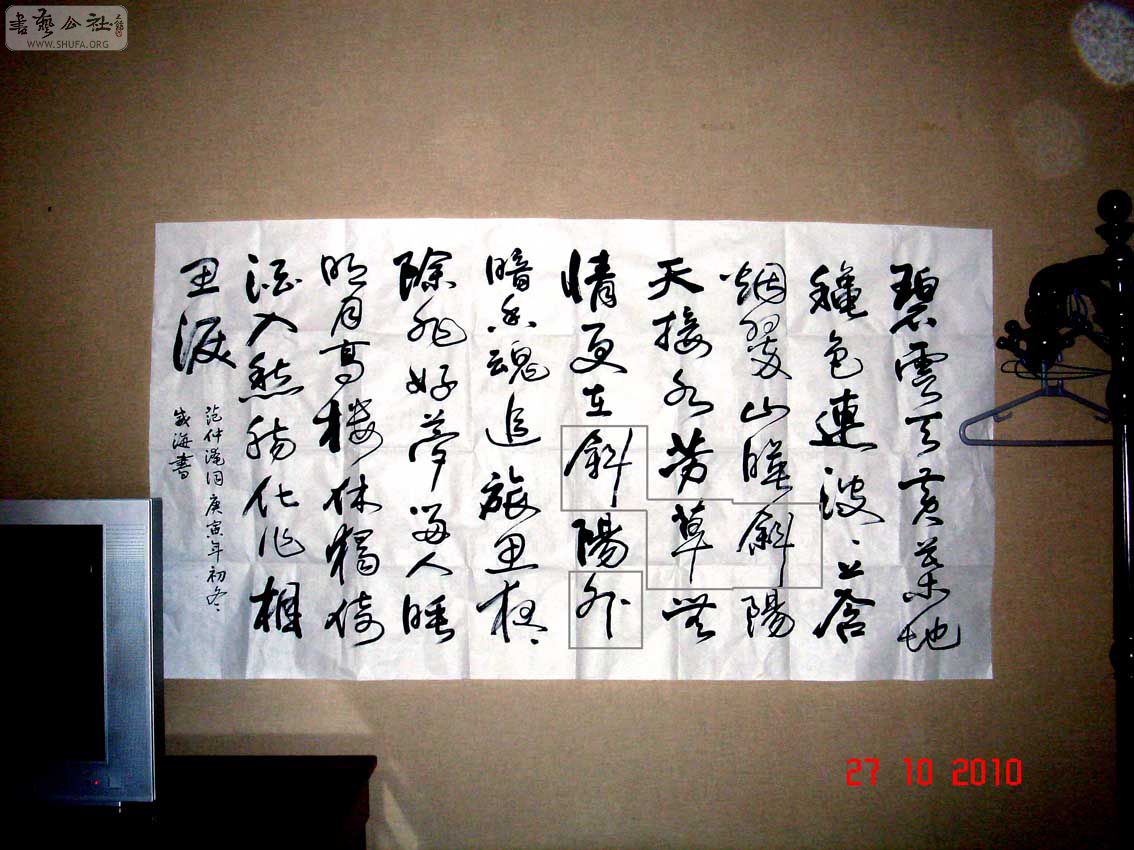 書藝公社
WWW.SHUFA.ORG
碧雲天黄葉地
穐色連波ミ上寒
烟翠山暎斜陽
天接水芳草無
情更在斜陽外
暗鄉魂追旅思夜ミ
除非好夢留人睡
明月高楼休獨倚
酒入愁腸化作相
思淚
范仲淹詞 庚寅年初冬
海書
27 10 2010